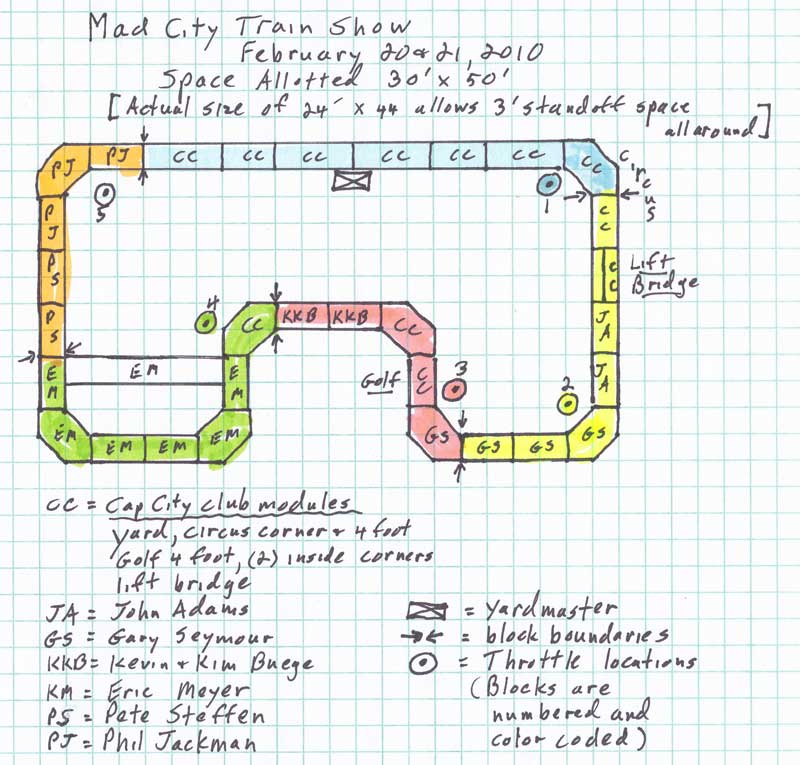 Mad City Train Show
February 20 & 21, 2010
Space Allotted 30' x 50'
[Actual size of 24' x 44 allows 3' standoff space all around]
PJ PJ CC CC CC CC CC CC CC
circus
5
1
PJ
CC
PS
CC
Lift Bridge
PS
JA
4
CC KKB KKB CC
EM
EM
EM
JA
Golf
CC
3
2
EM EM EM EM
GS GS GS GS
CC = Cap City club modules
yard, circus corner & 4 foot
Golf 4 foot, (2) inside corners
lift bridge
JA = John Adams
GS = Gary Seymour
KKB = Kevin & Kim Buege
KM = Eric Meyer
PS = Pete Steffen
PJ = Phil Jackman
= yardmaster
= block boundaries
= Throttle locations
(Blocks are
numbered and
color coded)